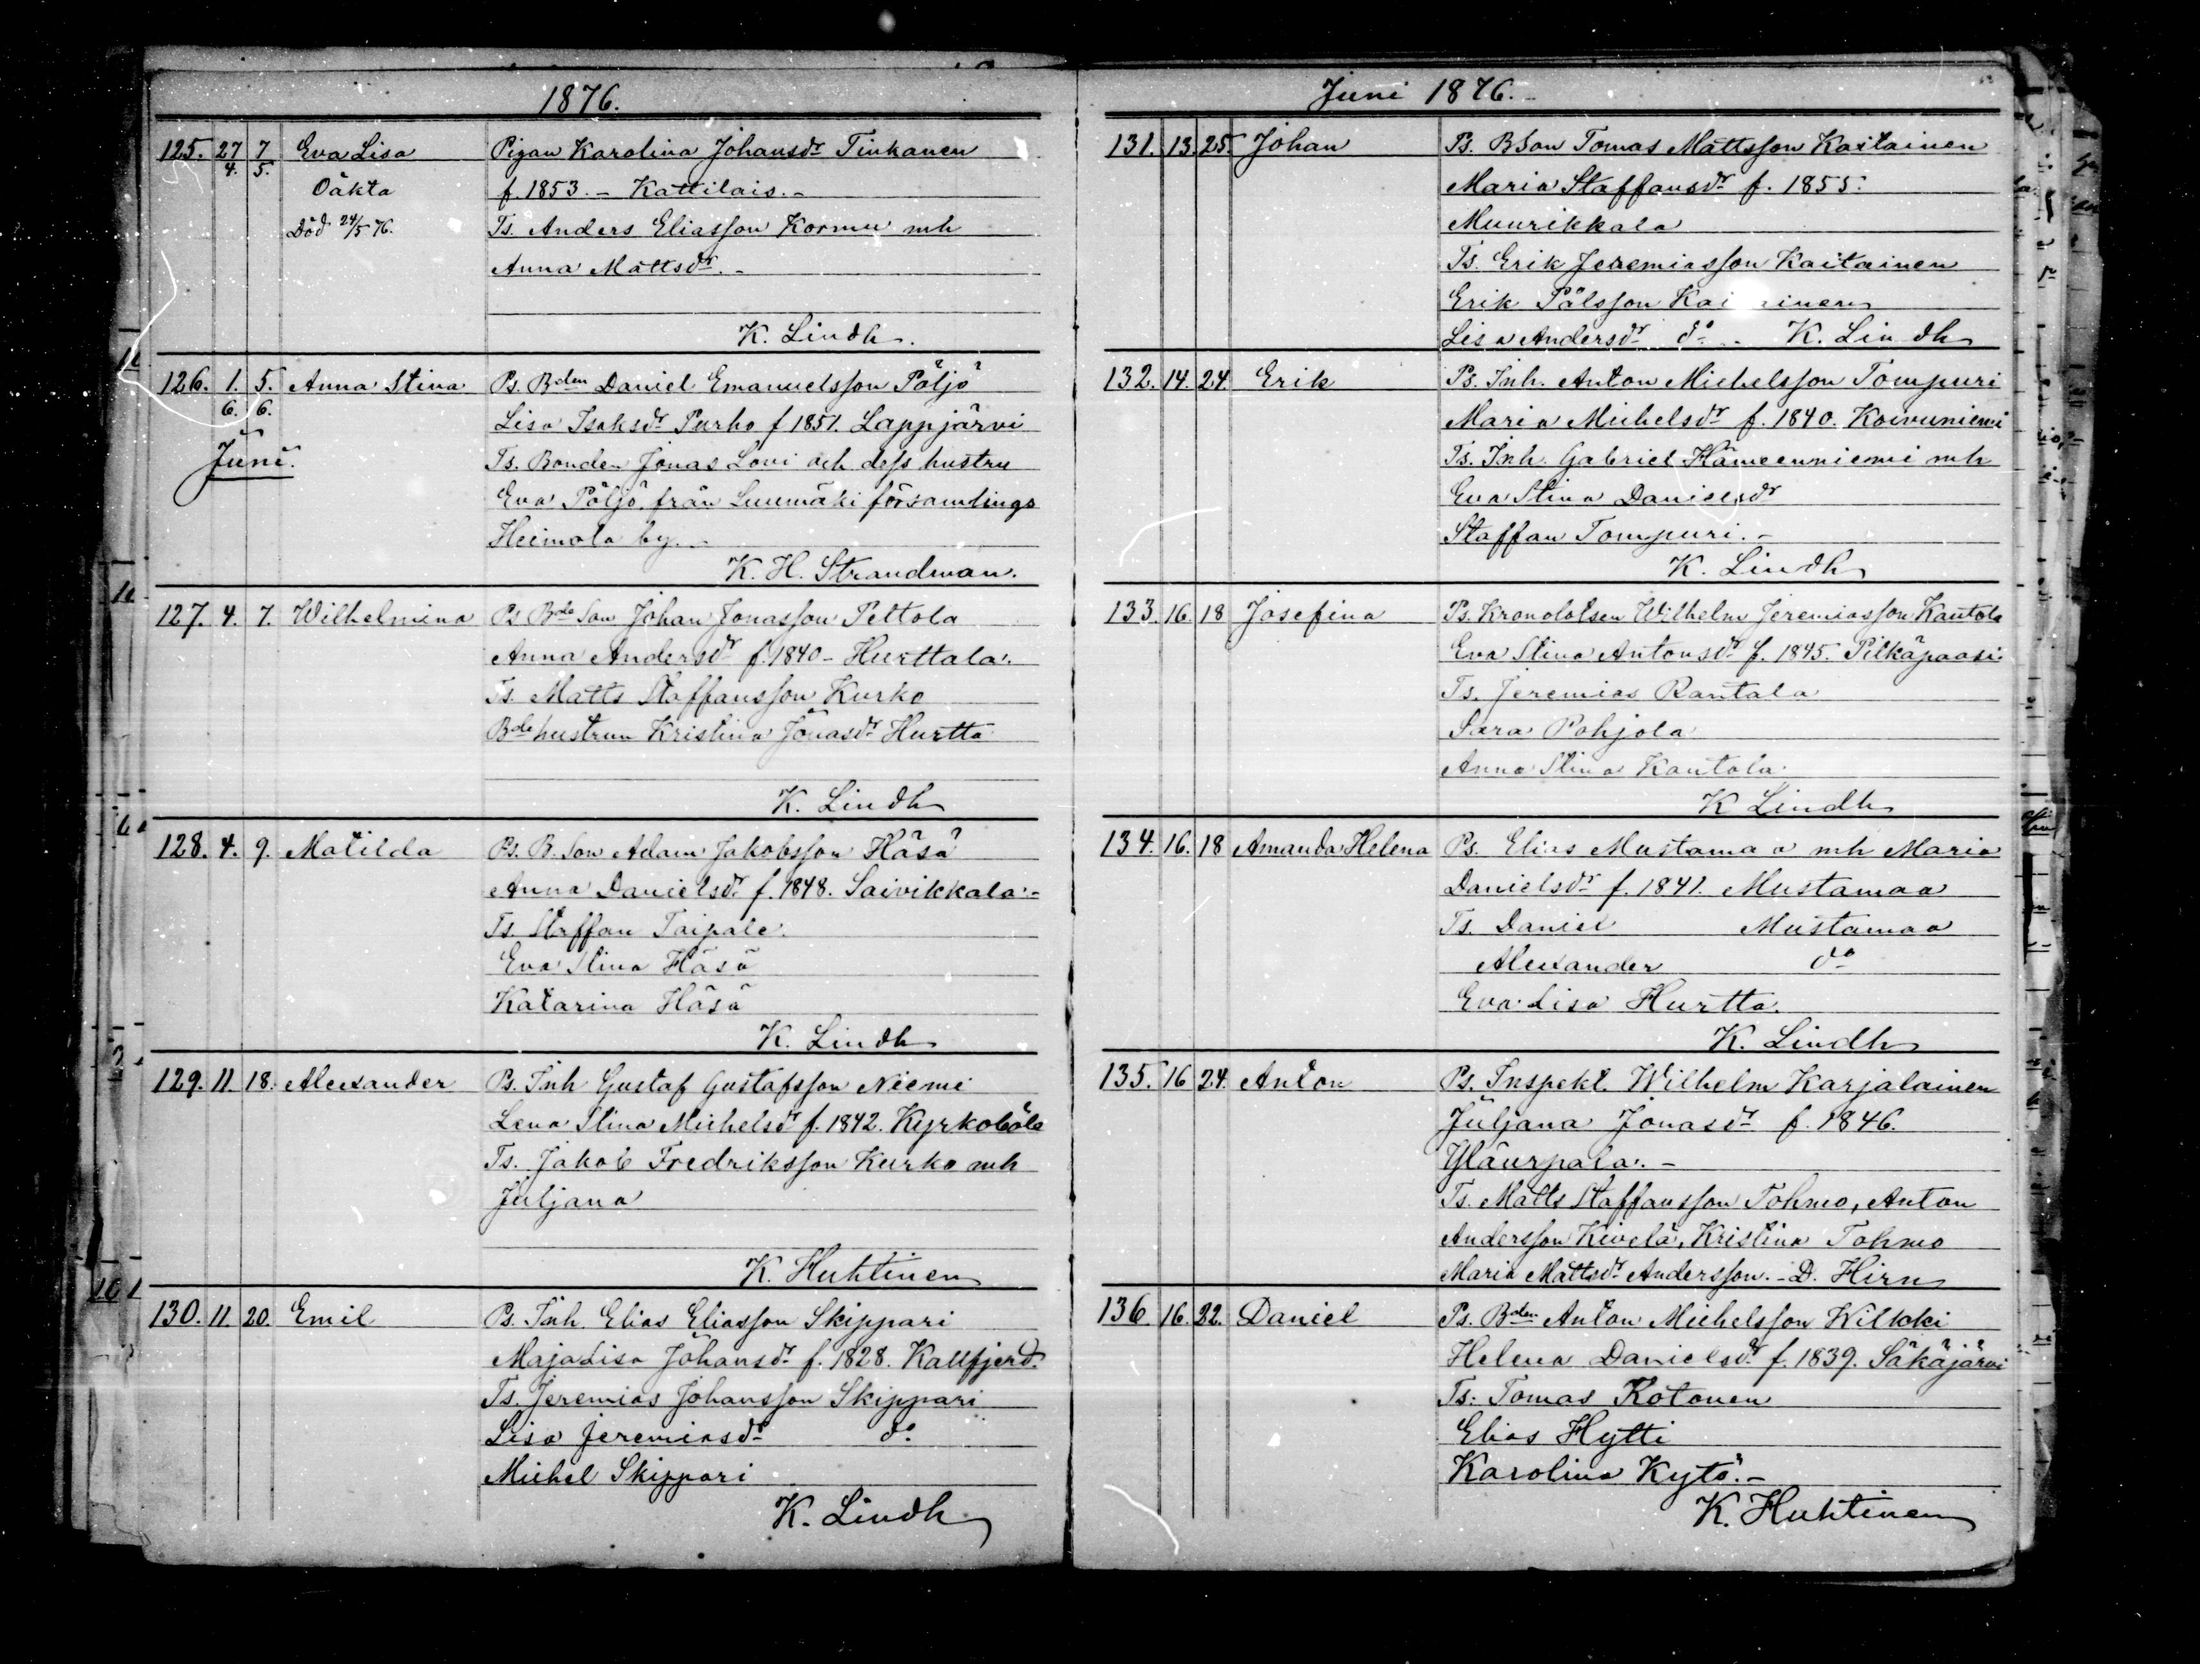 1876.
125. 27/4. 7/5. Eva Lisa Pigan Karolina Johansdr Tinkanen
Oäkta f. 1853. - Kattilais. -
Död 24/5 76. Ts. Anders Eliasson Kormu mh
Anna Mattsdr. -
K. Lindh.
126. 1/6. 5/6. Anna Stina Ps. Bden Daniel Emanuelsson Pöljö
Lisa Isaksdr Purho f 1851. Lappjärvi
Juni. Ts. Bonden Jonas Lovi och dess hustru
Eva Pöljö från Luumäki församlings
Heimola by. -
K. H. Strandman.
127. 4. 7. Wilhelmina Ps Bde Son Johan Jonasson Peltola
Anna Andersdr f. 1840 - Hurttala.
Ts. Matts Staffansson Kurko
Bde hustrun Kristina Jonasdr Hurtta
K. Lindh
128. 4. 9. Matilda Ps. B. Son Adam Jakobsson Häsä
Anna Danielsdr. f. 1848. Saivikkala. -
Ts. Staffan Taipale.
Eva Stina Häsä
Katarina Häsä
K. Lindh
129. 11. 18. Alexander Ps. Inh Gustaf Gustafsson Niemi
Lena Stina Michelsdr f. 1842. Kyrkoböle
Ts. Jakob Fredriksson Kurko mh
Juljana
K. Huhtinen
130. 11. 20. Emil Ps. Inh. Elias Eliasson Skippari
Maja Lisa Johansdr f. 1828. Kallfjerd.
Ts. Jeremias Johansson Skippari
Lisa Jeremiasdr do.
Michel Skippari
K. Lindh
Juni 1876.
131. 13. 25. Johan Ps. BSon Tomas Mattsson Kaitainen
Maria Staffansdr f. 1855.
Muurikkala
Ts. Erik Jeremiasson Kaitainen
Erik Pålsson Kai ainen
Lisa Andersdr do. - K. Lindh
132. 14. 24. Erik Ps. Inh. Anton Michelsson Tompuri
Maria Michelsdr f. 1840. Koivuniemi
Ts. Inh. Gabriel Hämeenniemi mh
Eva Stina Danielsdr
Staffan Tompuri. -
K. Lindh
133. 16. 18 Josefina Ps. Kronolotsen Wilhelm Jeremiasson Kantola
Eva Stina Antonsdr f. 1845. Pitkäpaasi
Ts. Jeremias Rantala
Sara Pohjola
Anna Stina Kantola.
K Lindh
134. 16. 18 Amanda Helena Ps. Elias Mustamaa mh Maria
Danielsdr f. 1841. Mustamaa
Ts. Daniel Mustamaa
Alexander do
Eva Lisa Hurtta.
K. Lindh
135. 16 24. Anton Ps. Inspekt. Wilhelm Karjalainen
Juljana Jonasdr f. 1846.
Yläurpala. -
Ts. Matts Staffansson Tohmo, Anton
Andersson Kivelä, Kristina Tohmo
Maria Mattsdr Andersson. - D. Hirn
136. 16. 22. Daniel Ps. Bden Anton Michelsson Wilkki
Helena Danielsdr f. 1839. Säkäjärvi
Ts. Tomas Kotonen
Elias Hytti
Karolina Kytö. -
K. Huhtinen